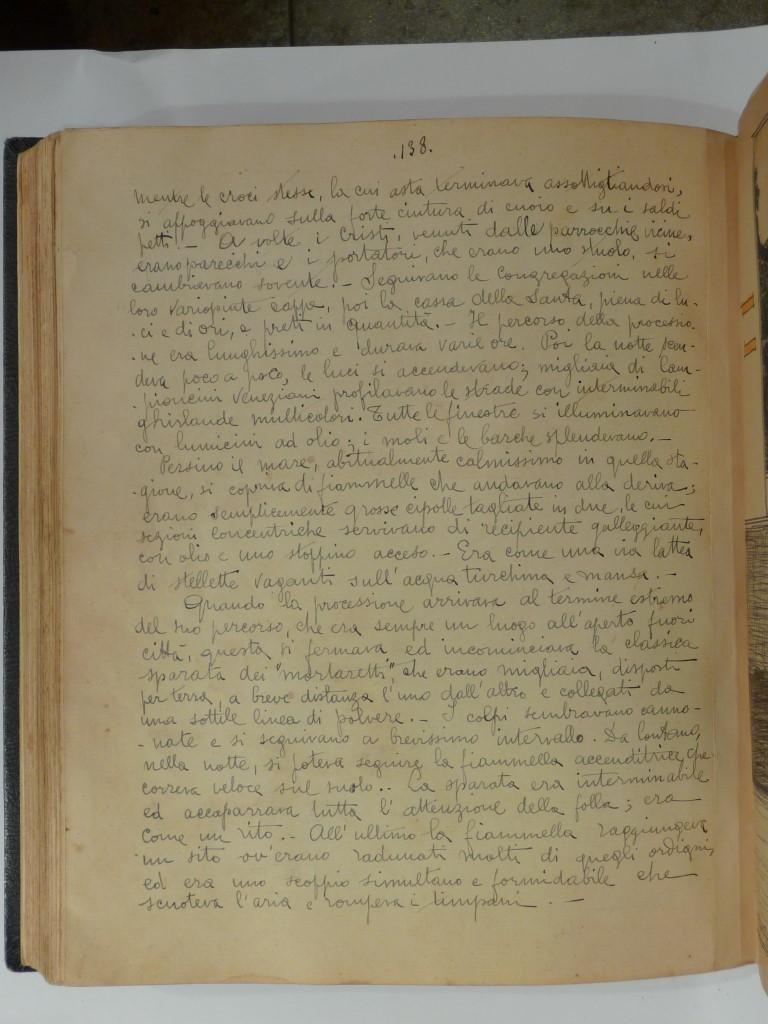 .138.
mentre le croci stesse, la cui asta terminava assottigliandosi,
si appoggiavano sulla forte cintura di cuoio e su i saldi
petti. - A volte i Cristi, venuti dalle parrocchie vicine,
erano parecchi e i portatori, che erano uno stuolo, si
cambiavano sovente. - Seguivano le Congregazioni nelle
loro variopinte cappe, poi la cassa della Santa, piena di lu-
- ci e di ori, e preti in quantità. - Il percorso della processio.
- ne era lunghissimo e durava varie ore. Poi la notte scen-
deva poco a poco, le luci si accendevano; migliaia di lam-
- pioncini veneziani profilavano le strade con interminabili
ghirlande multicolori. Tutte le finestre si illuminavano
con lumicini ad olio; i moli e le barche splendevano. -
Persino il mare, abitualmente calmissimo in quella sta-
- gione, si copriva di fiammelle che andavano alla deriva;
erano semplicemente grosse cipolle tagliate in due, le cui
sezioni concentriche servivano di recipiente galleggiante,
con olio e uno stoppino acceso. - Era come una via lattea
di stellette vaganti sull'acqua turchina e mansa. -
Quando la processione arrivava al termine estremo
del suo percorso, che era sempre un luogo all'aperto fuori
città, questa si fermava ed incominciava la classica
sparata dei "mortaretti", che erano migliaia, disposti
per terra, a breve distanza l'uno dall'altro e collegati da
una sottile linea di polvere. - I colpi sembravano canno-
- nate e si seguivano a brevissimo intervallo. Da lontano,
nella notte, si poteva seguire la fiammella accenditrice che
correva veloce sul suolo. - La sparata era interminabile
ed accaparrava tutta l'attenzione della folla; era
come un rito. - All'ultimo la fiammella raggiungeva
un sito ov'erano radunati molti di quegli ordigni,
ed era uno scoppio simultaneo e formidabile che
scuoteva l'aria e rompeva i timpani. -